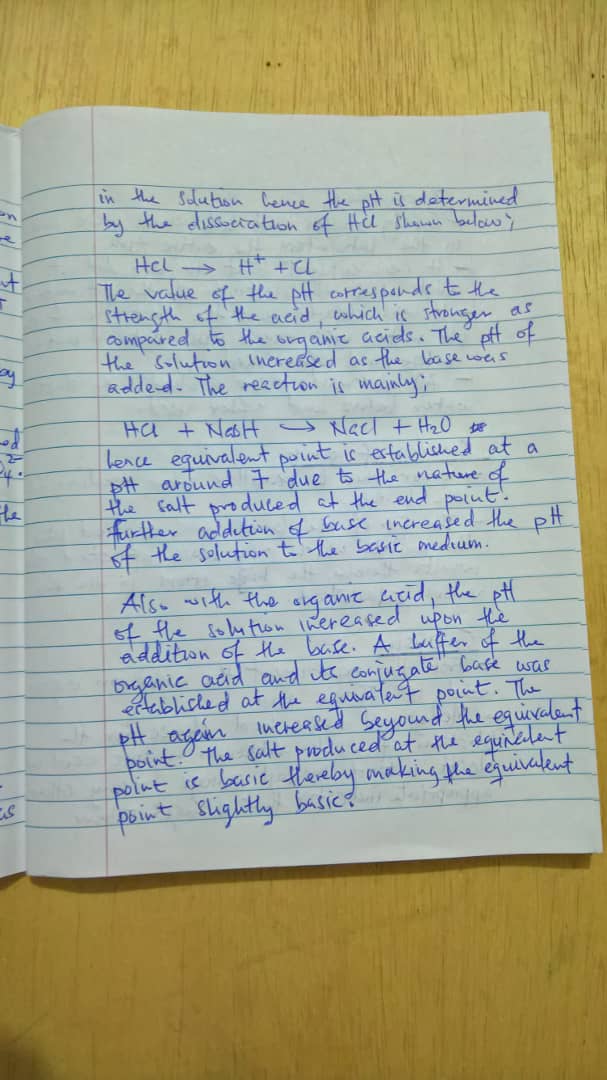 in the solution hence the pH is determined
by the dissociation of HCl shown below;
HCl → H⁺ + Cl
The value of the pH corresponds to the
strength of the acid, which is stronger as
compared to the organic acids. The pH of
the solution increased as the base was
added. The reaction is mainly;
HCl + NaOH → NaCl + H₂O
hence equivalent point is established at a
pH around 7 due to the nature of
the salt produced at the end point.
further addition of base increased the pH
of the solution to the basic medium.
Also with the organic acid, the pH
of the solution increased upon the
addition of the base. A buffer of the
organic acid and its conjugate base was
established at the equivalent point. The
pH again increased beyound the equivalent
point. The salt produced at the equivalent
point is basic thereby making the equivalent
point slightly basic.
on
re
ut
ay
od
the
us